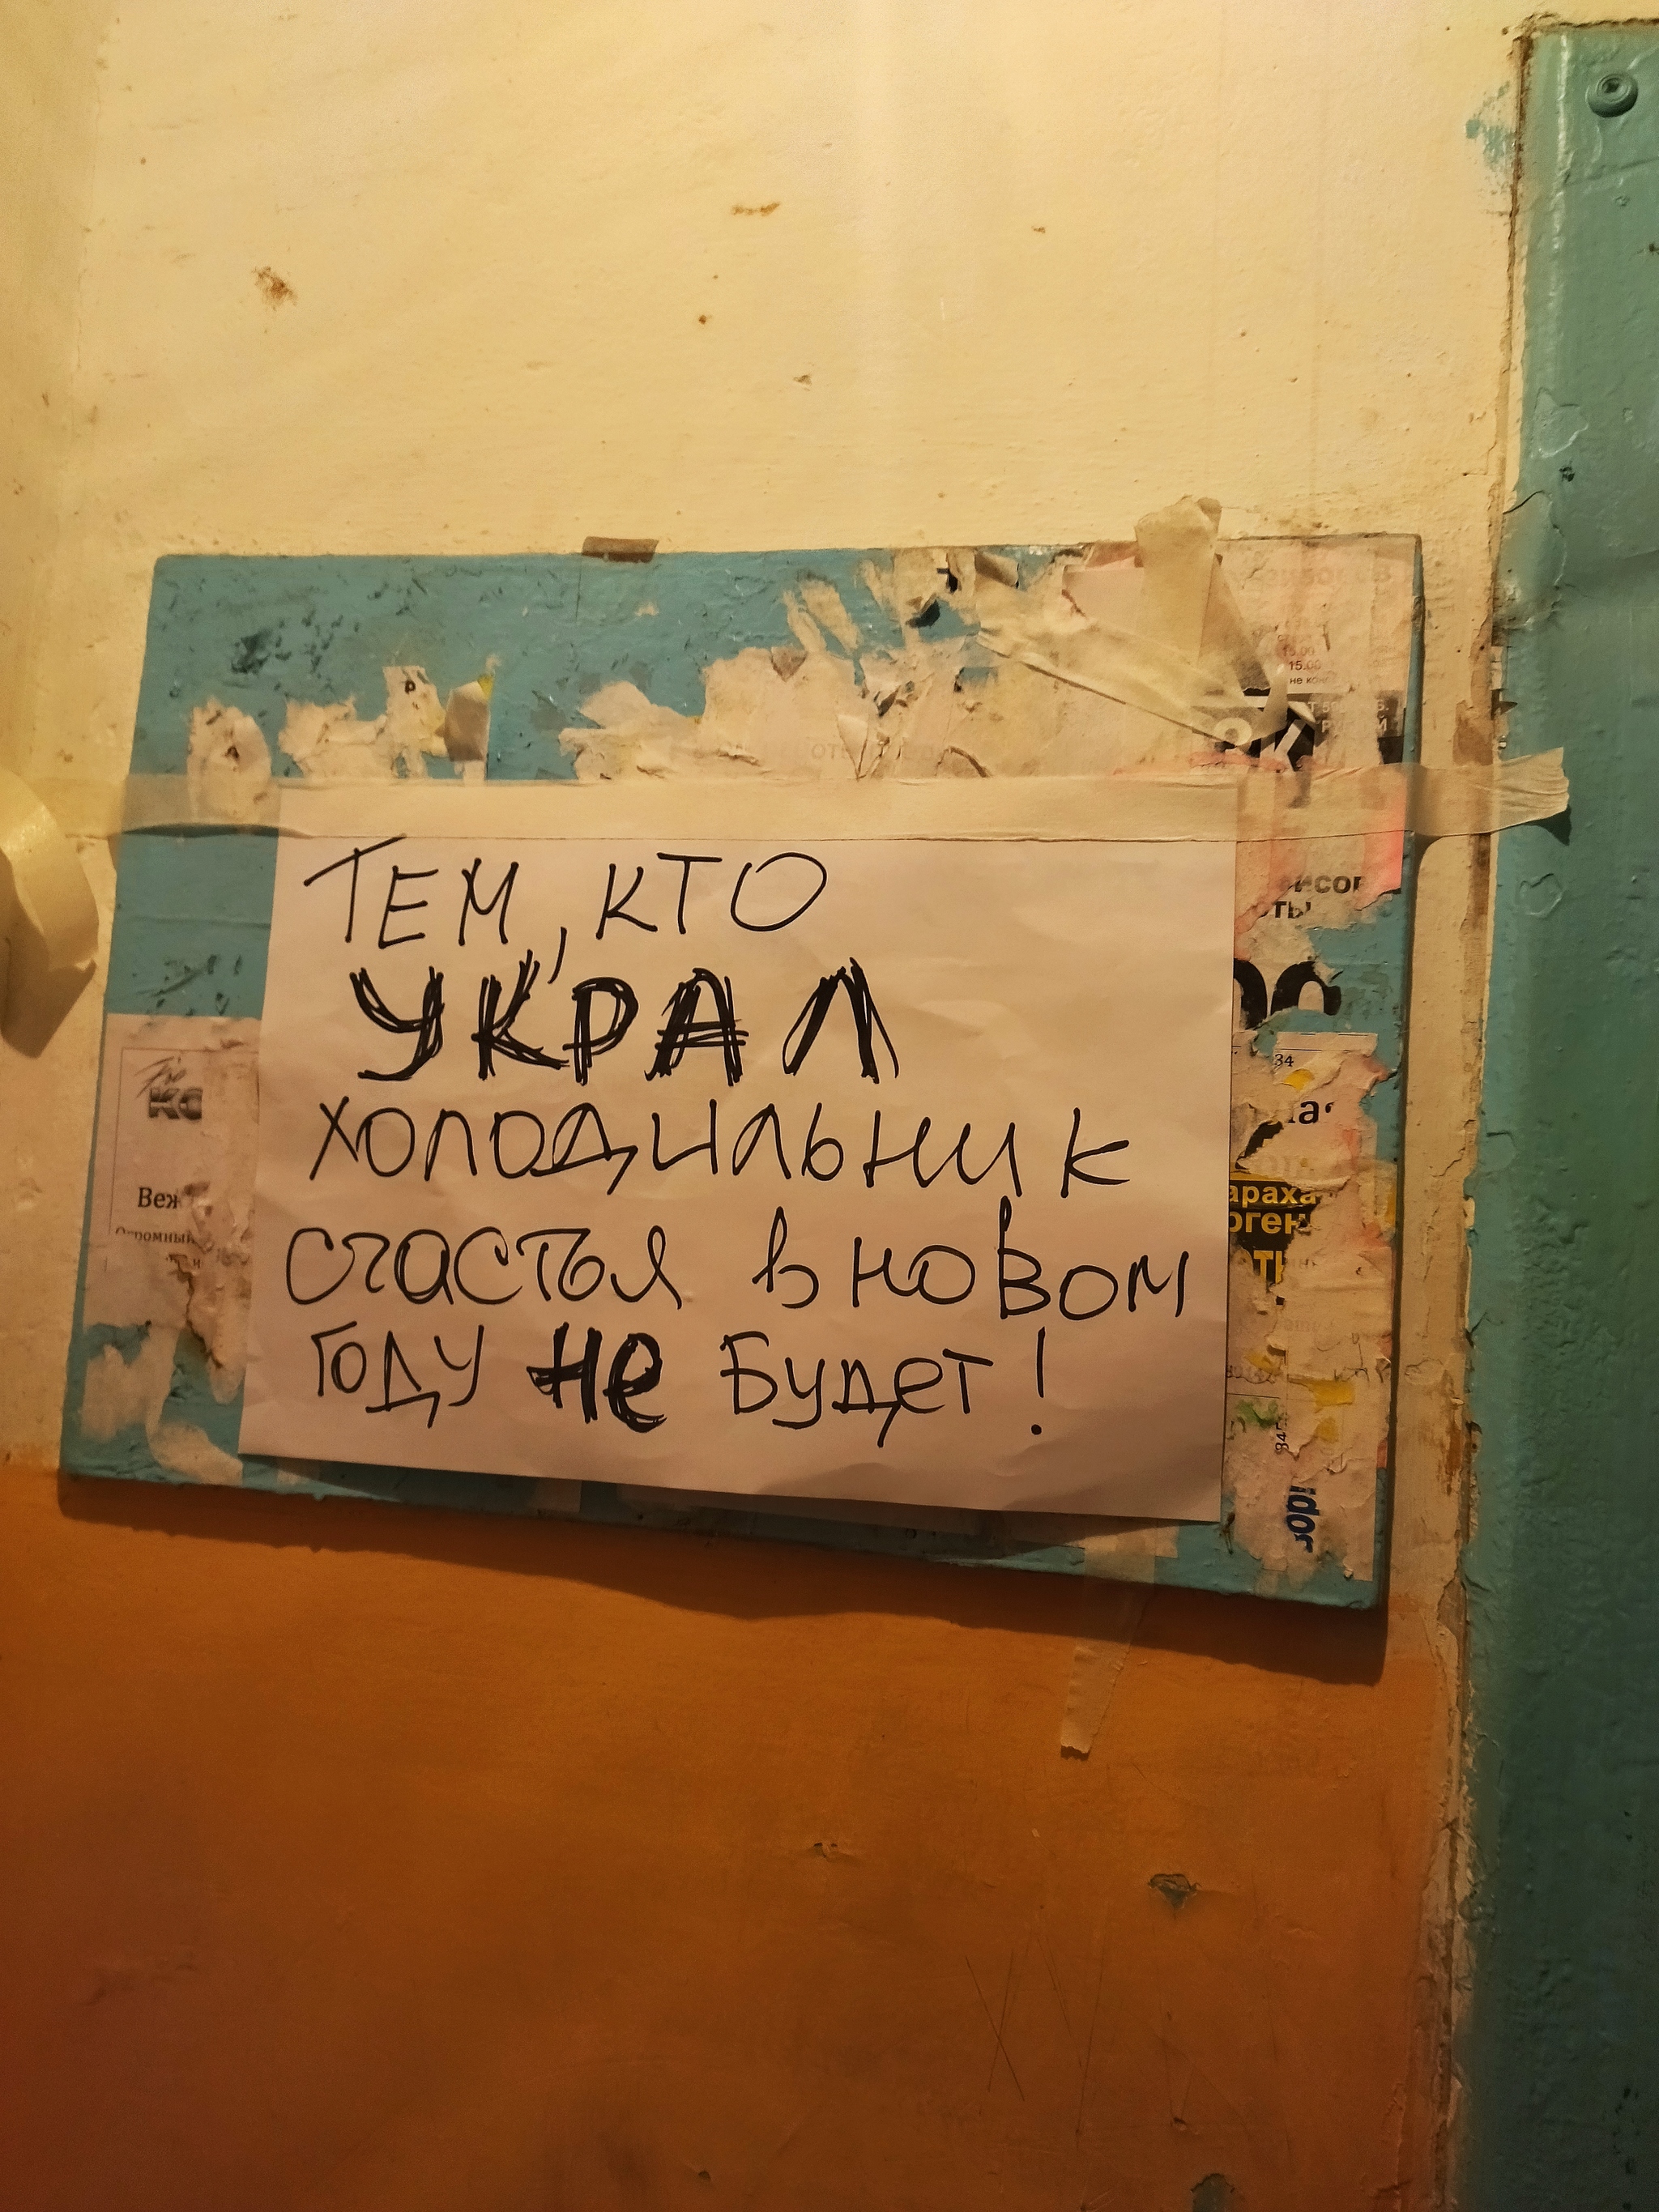 15.00
15.00
ТЕМ, КТО
УКРАЛ
ХОЛОДИЛЬНИК
СЧАСТЬЯ в НОВОМ
ГОДУ НЕ БУДЕТ!
34